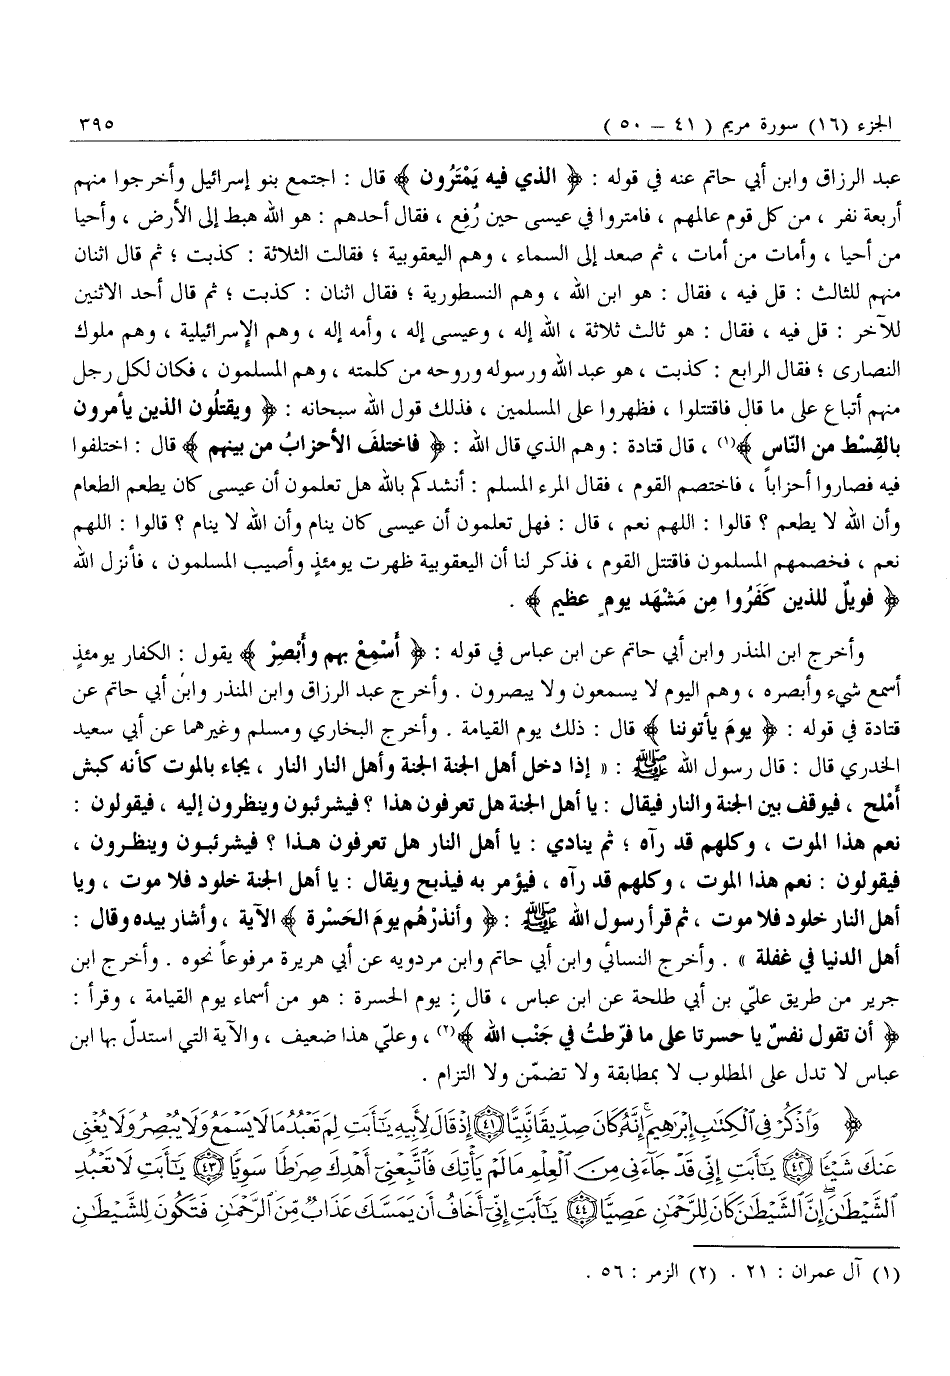 الجزء (١٦) سورة مريم ( ٤١ – ٥٠ ) ٣٩٥
عبد الرزاق وابن أبي حاتم عنه في قوله : ﴿ الذي فيه يَمْتَرُون ﴾ قال : اجتمع بنو إسرائيل وأخرجوا منهم
أربعة نفر ، من كل قوم عالمهم ، فامتروا في عيسى حين رُفِع ، فقال أحدهم : هو الله هبط إلى الأرض ، وأحيا
من أحيا ، وأمات من أمات ، ثم صعد إلى السماء ، وهم اليعقوبية ؛ فقالت الثلاثة : كذبت ؛ ثم قال اثنان
منهم للثالث : قل فيه ، فقال : هو ابن الله ، وهم النسطورية ؛ فقال اثنان : كذبت ؛ ثم قال أحد الاثنين
للآخر : قل فيه ، فقال : هو ثالث ثلاثة ، الله إله ، وعيسى إله ، وأمه إله ، وهم الإسرائيلية ، وهم ملوك
النصارى ؛ فقال الرابع : كذبت ، هو عبد الله ورسوله وروحه من كلمته ، وهم المسلمون ، فكان لكل رجل
منهم أتباع على ما قال فاقتتلوا ، فظهروا على المسلمين ، فذلك قول الله سبحانه : ﴿ ويقتلُون الذين يأمرون
بالقِسْط من النّاس ﴾(١) ، قال قتادة : وهم الذي قال الله : ﴿ فاختلفَ الأحزابُ من بينهم ﴾ قال : اختلفوا
فيه فصاروا أحزاباً ، فاختصم القوم ، فقال المرء المسلم : أنشدكم بالله هل تعلمون أن عيسى كان يطعم الطعام
وأن الله لا يطعم ؟ قالوا : اللهم نعم ، قال : فهل تعلمون أن عيسى كان ينام وأن الله لا ينام ؟ قالوا : اللهم
نعم ، فخصمهم المسلمون فاقتتل القوم ، فذكر لنا أن اليعقوبية ظهرت يومئذٍ وأصيب المسلمون ، فأنزل الله
﴿ فويلٌ للذين كَفَرُوا مِن مَشْهَد يومٍ عظيم ﴾ .
وأخرج ابن المنذر وابن أبي حاتم عن ابن عباس في قوله : ﴿ أَسْمِعْ بهم وأَبْصِرْ ﴾ يقول : الكفار يومئذٍ
أسمع شيء وأبصره ، وهم اليوم لا يسمعون ولا يبصرون . وأخرج عبد الرزاق وابن المنذر وابن أبي حاتم عن
قتادة في قوله : ﴿ يومَ يأتوننا ﴾ قال : ذلك يوم القيامة . وأخرج البخاري ومسلم وغيرهما عن أبي سعيد
الخدري قال : قال رسول الله ﷺ : « إذا دخل أهل الجنة الجنة وأهل النار النار ، يجاء بالموت كأنه كبش
أَمْلح ، فيوقف بين الجنة والنار فيقال : يا أهل الجنة هل تعرفون هذا ؟ فيشرئبون وينظرون إليه ، فيقولون :
نعم هذا الموت ، وكلهم قد رآه ؛ ثم ينادي : يا أهل النار هل تعرفون هـذا ؟ فيشرئبـون وينظـرون ،
فيقولون : نعم هذا الموت ، وكلهم قد رآه ، فيؤمر به فيذبح ويقال : يا أهل الجنة خلود فلا موت ، ويا
أهل النار خلود فلا موت ، ثم قرأ رسول الله ﷺ : ﴿ وأنذرْهُم يومَ الحَسْرة ﴾ الآية ، وأشار بيده وقال :
أهل الدنيا في غفلة » . وأخرج النسائي وابن أبي حاتم وابن مردويه عن أبي هريرة مرفوعاً نحوه . وأخرج ابن
جرير من طريق عليّ بن أبي طلحة عن ابن عباس ، قال : يوم الحسرة : هو من أسماء يوم القيامة ، وقرأ :
﴿ أن تقول نفسٌ يا حسرتا على ما فرّطتُ في جَنْب الله ﴾(٢) ، وعليّ هذا ضعيف ، والآية التي استدلّ بها ابن
عباس لا تدل على المطلوب لا بمطابقة ولا تضمّن ولا التزام .
﴿ وَٱذْكُرْ فِى ٱلْكِتَٰبِ إِبْرَٰهِيمَ إِنَّهُۥ كَانَ صِدِّيقًا نَّبِيًّا ﴿٤١﴾ إِذْ قَالَ لِأَبِيهِ يَٰٓأَبَتِ لِمَ تَعْبُدُ مَا لَا يَسْمَعُ وَلَا يُبْصِرُ وَلَا يُغْنِى
عَنكَ شَيْـًٔا ﴿٤٢﴾ يَٰٓأَبَتِ إِنِّى قَدْ جَآءَنِى مِنَ ٱلْعِلْمِ مَا لَمْ يَأْتِكَ فَٱتَّبِعْنِىٓ أَهْدِكَ صِرَٰطًا سَوِيًّا ﴿٤٣﴾ يَٰٓأَبَتِ لَا تَعْبُدِ
ٱلشَّيْطَٰنَ إِنَّ ٱلشَّيْطَٰنَ كَانَ لِلرَّحْمَٰنِ عَصِيًّا ﴿٤٤﴾ يَٰٓأَبَتِ إِنِّىٓ أَخَافُ أَن يَمَسَّكَ عَذَابٌ مِّنَ ٱلرَّحْمَٰنِ فَتَكُونَ لِلشَّيْطَٰنِ
(١) آل عمران : ٢١ . (٢) الزمر : ٥٦ .